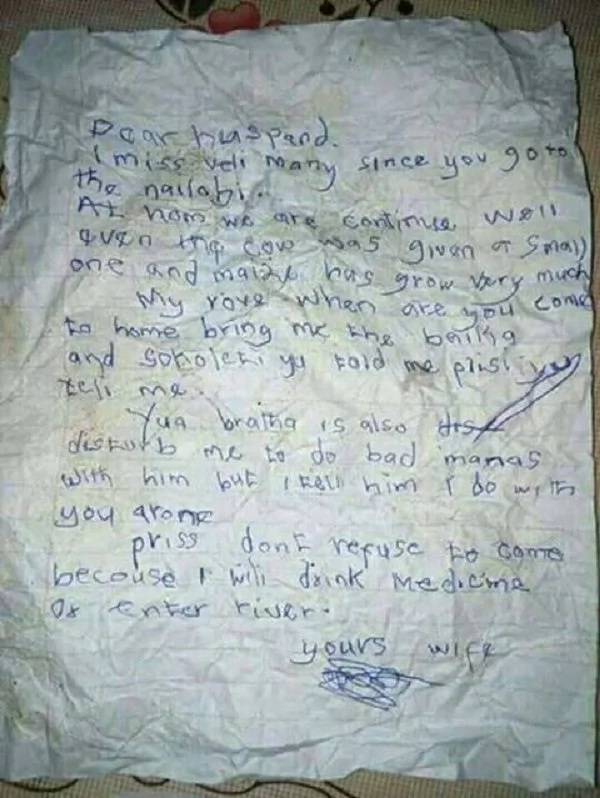 Dear huspand.
I miss veli many since you go to
the nailabi.
At hom we are continue well
even the cow was given a small
one and maize has grow very much
My rove when are you come
to home bring me the
and yu told me plisi
teli me.
Yua bratha is also
disturb me to do bad manas
with him but i teli him I do with
you arone
priss dont refuse to come
because I wili drink medicine
or enter river.
yours wife